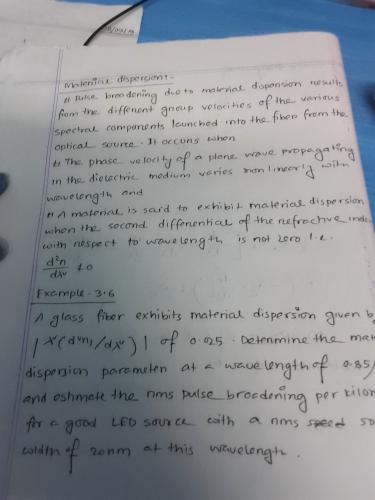 Material dispersion:-
" Pulse broadening due to material dispersion results
from the different group velocities of the various
spectral components launched into the fiber from the
optical source. It occurs when
" The phase velocity of a plane wave propagating
in the dielectric medium varies non linearly with
wavelength and
" A material is said to exhibit material dispersion
when the second differential of the refractive
with respect to wavelength is not zero i.e.
d²n/dλ² ≠ 0
Example-3.6
A glass fiber exhibits material dispersion given
|λ²(d²n₁/dλ²)| of 0.025. Determine the
dispersion parameter at a wavelength of 0.85
and estimate the rms pulse broadening per
for a good LED source with a rms
width of 20nm at this wavelength.